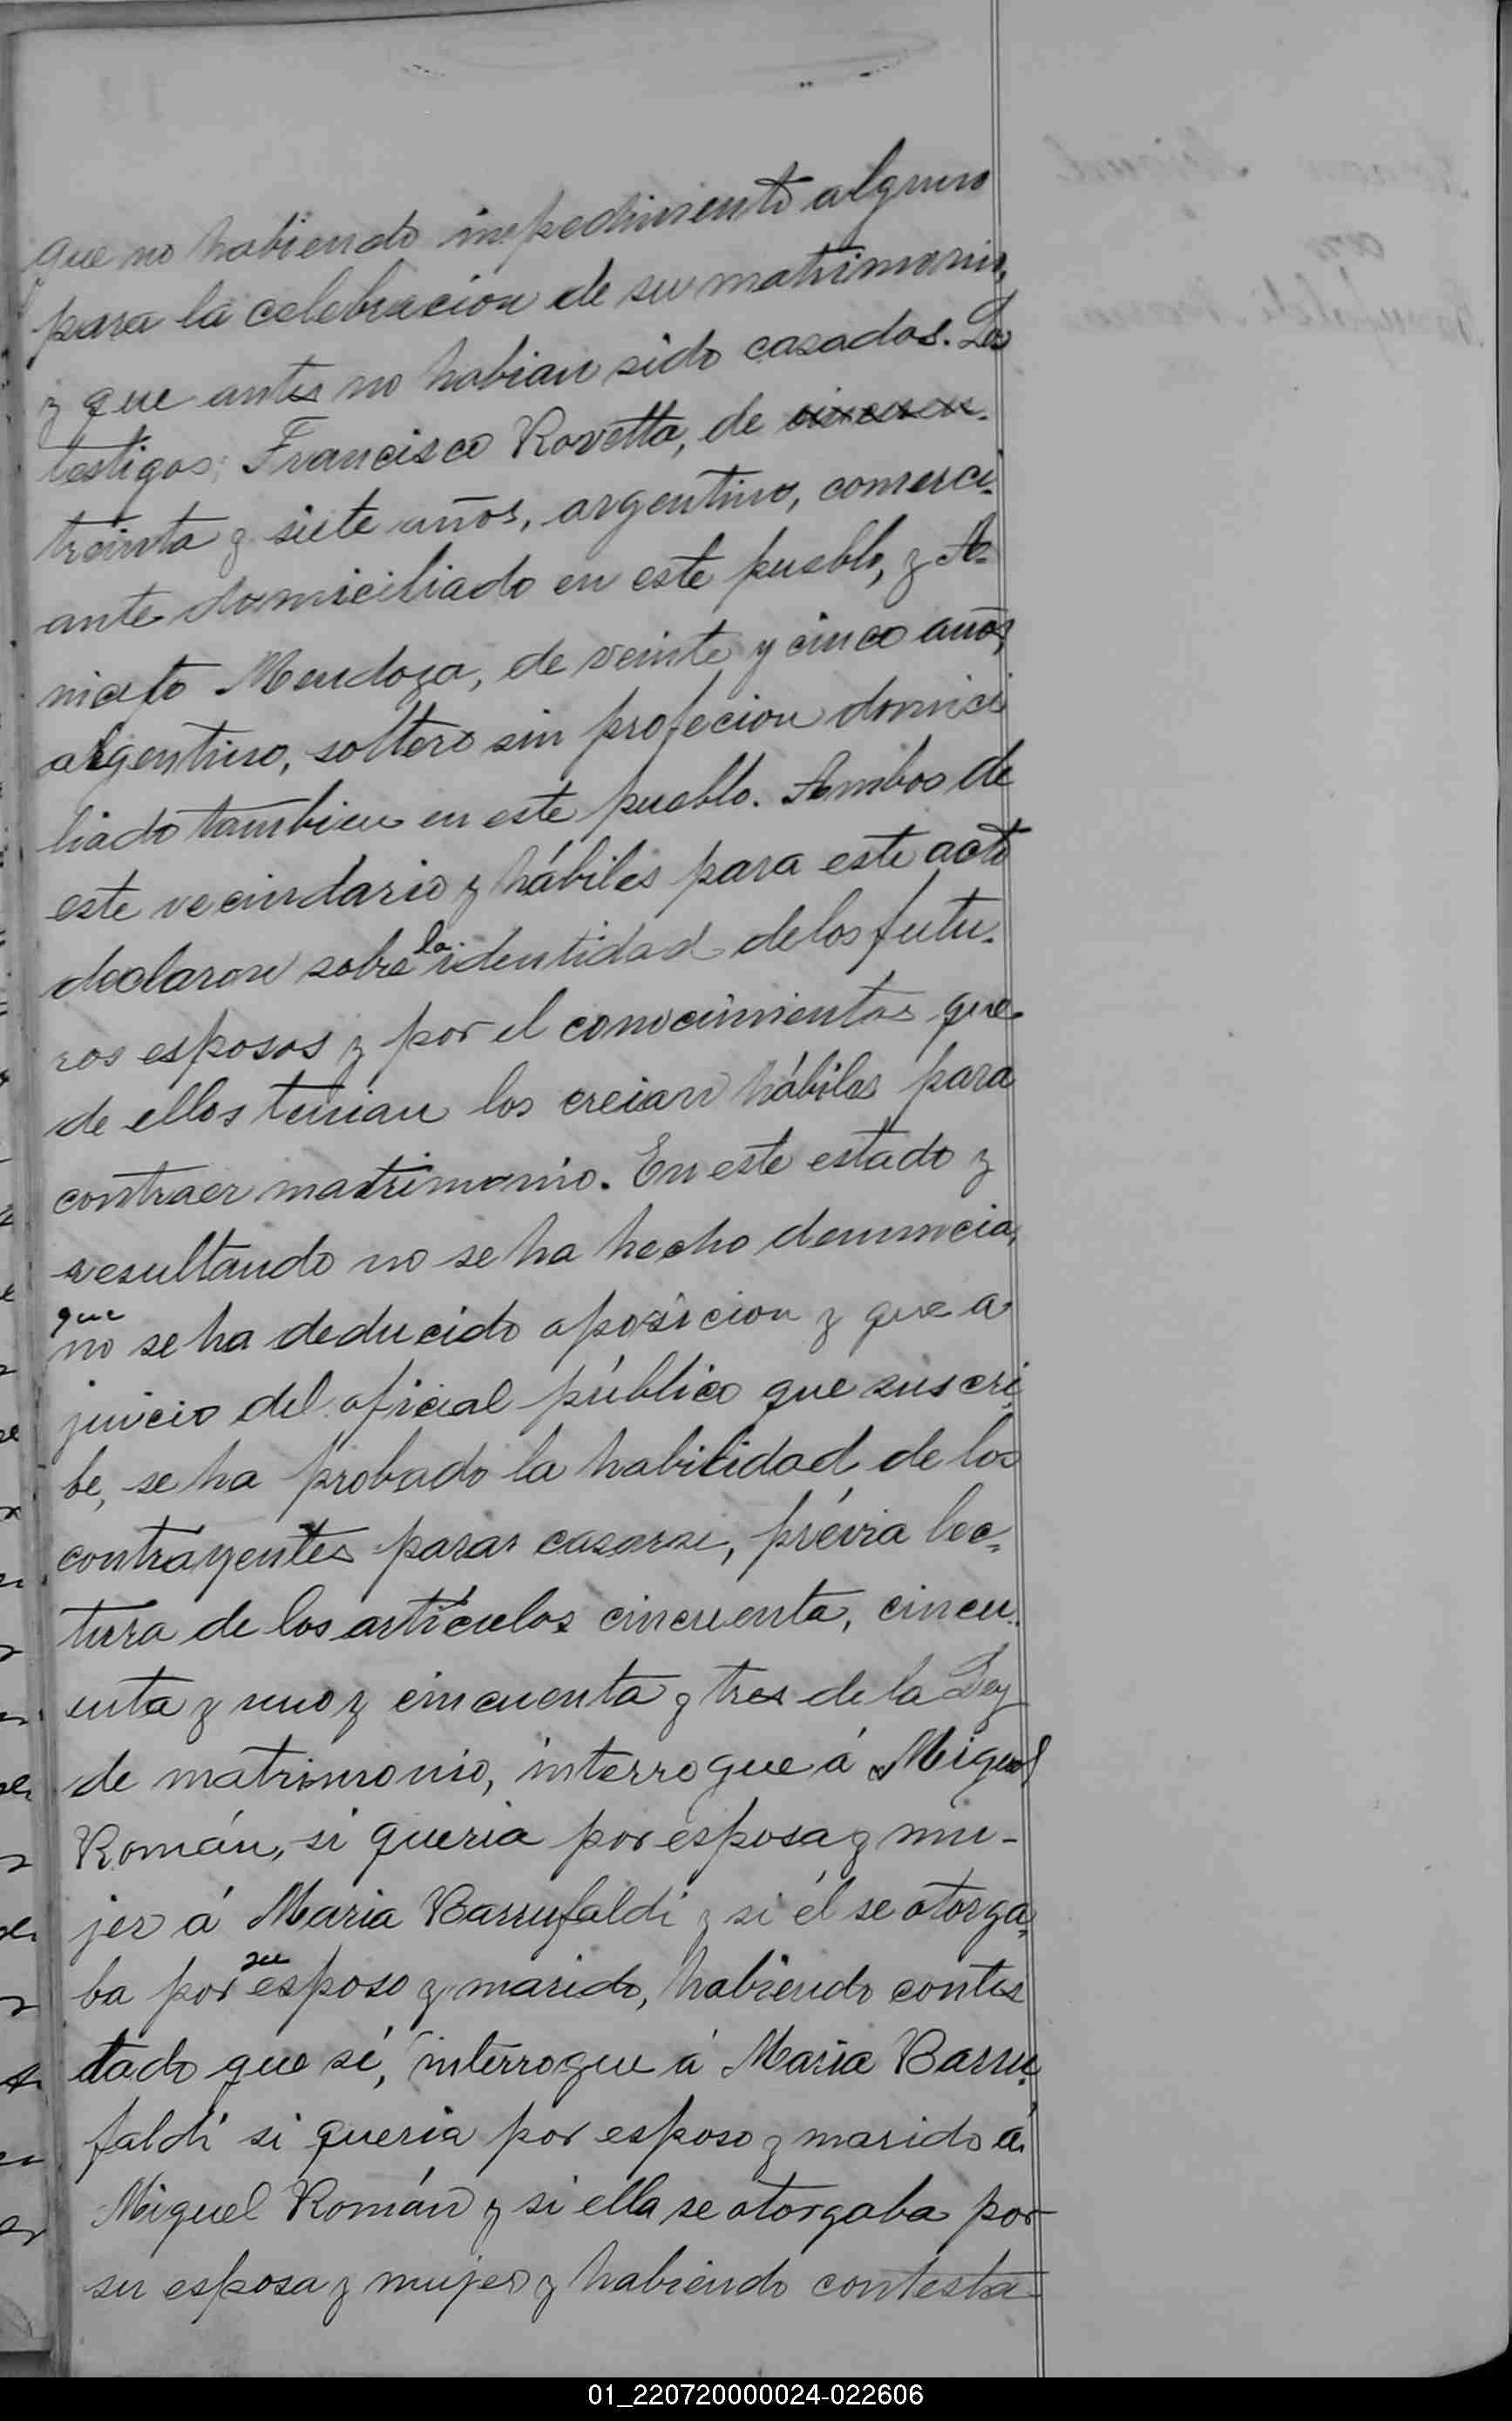 que no habiendo impedimento alguno
para la celebracion de su matrimonio,
y que antes no habian sido casados. Los
testigos: Francisco Rovetta, de
treinta y siete años, argentino, comerci-
ante domiciliado en este pueblo, y A-
niceto Mendoza, de veinte y cinco años,
argentino, soltero sin profecion domici
liado tambien en este pueblo. Ambos de
este vecindario y hábiles para este acto
declaron sobre la identidad de los futu-
ros esposos y por el conocimientos que
de ellos tenian los creian hábiles para
contraer matrimonio. En este estado y
resultando no se ha hecho denuncia,
que
no se ha deducido oposicion y que a
juicio del oficial público que suscri-
be, se ha probado la habilidad de los
contrayentes para casarse, prévia lec-
tura de los artículos cincuenta, cincu-
enta y uno y cincuenta y tres de la Ley
de matrimonio, interrogue á Miguel
Román, si queria por esposa y mu-
jer á Maria Barrufaldi y si él se otorga-
ba por su esposo y marido, habiendo contes
tado que sí, interrogue á Maria Barru-
faldi si queria por esposo y marido á
Miguel Román y si ella se otorgaba por
su esposa y mujer y habiendo contesta
01_220720000024-022606